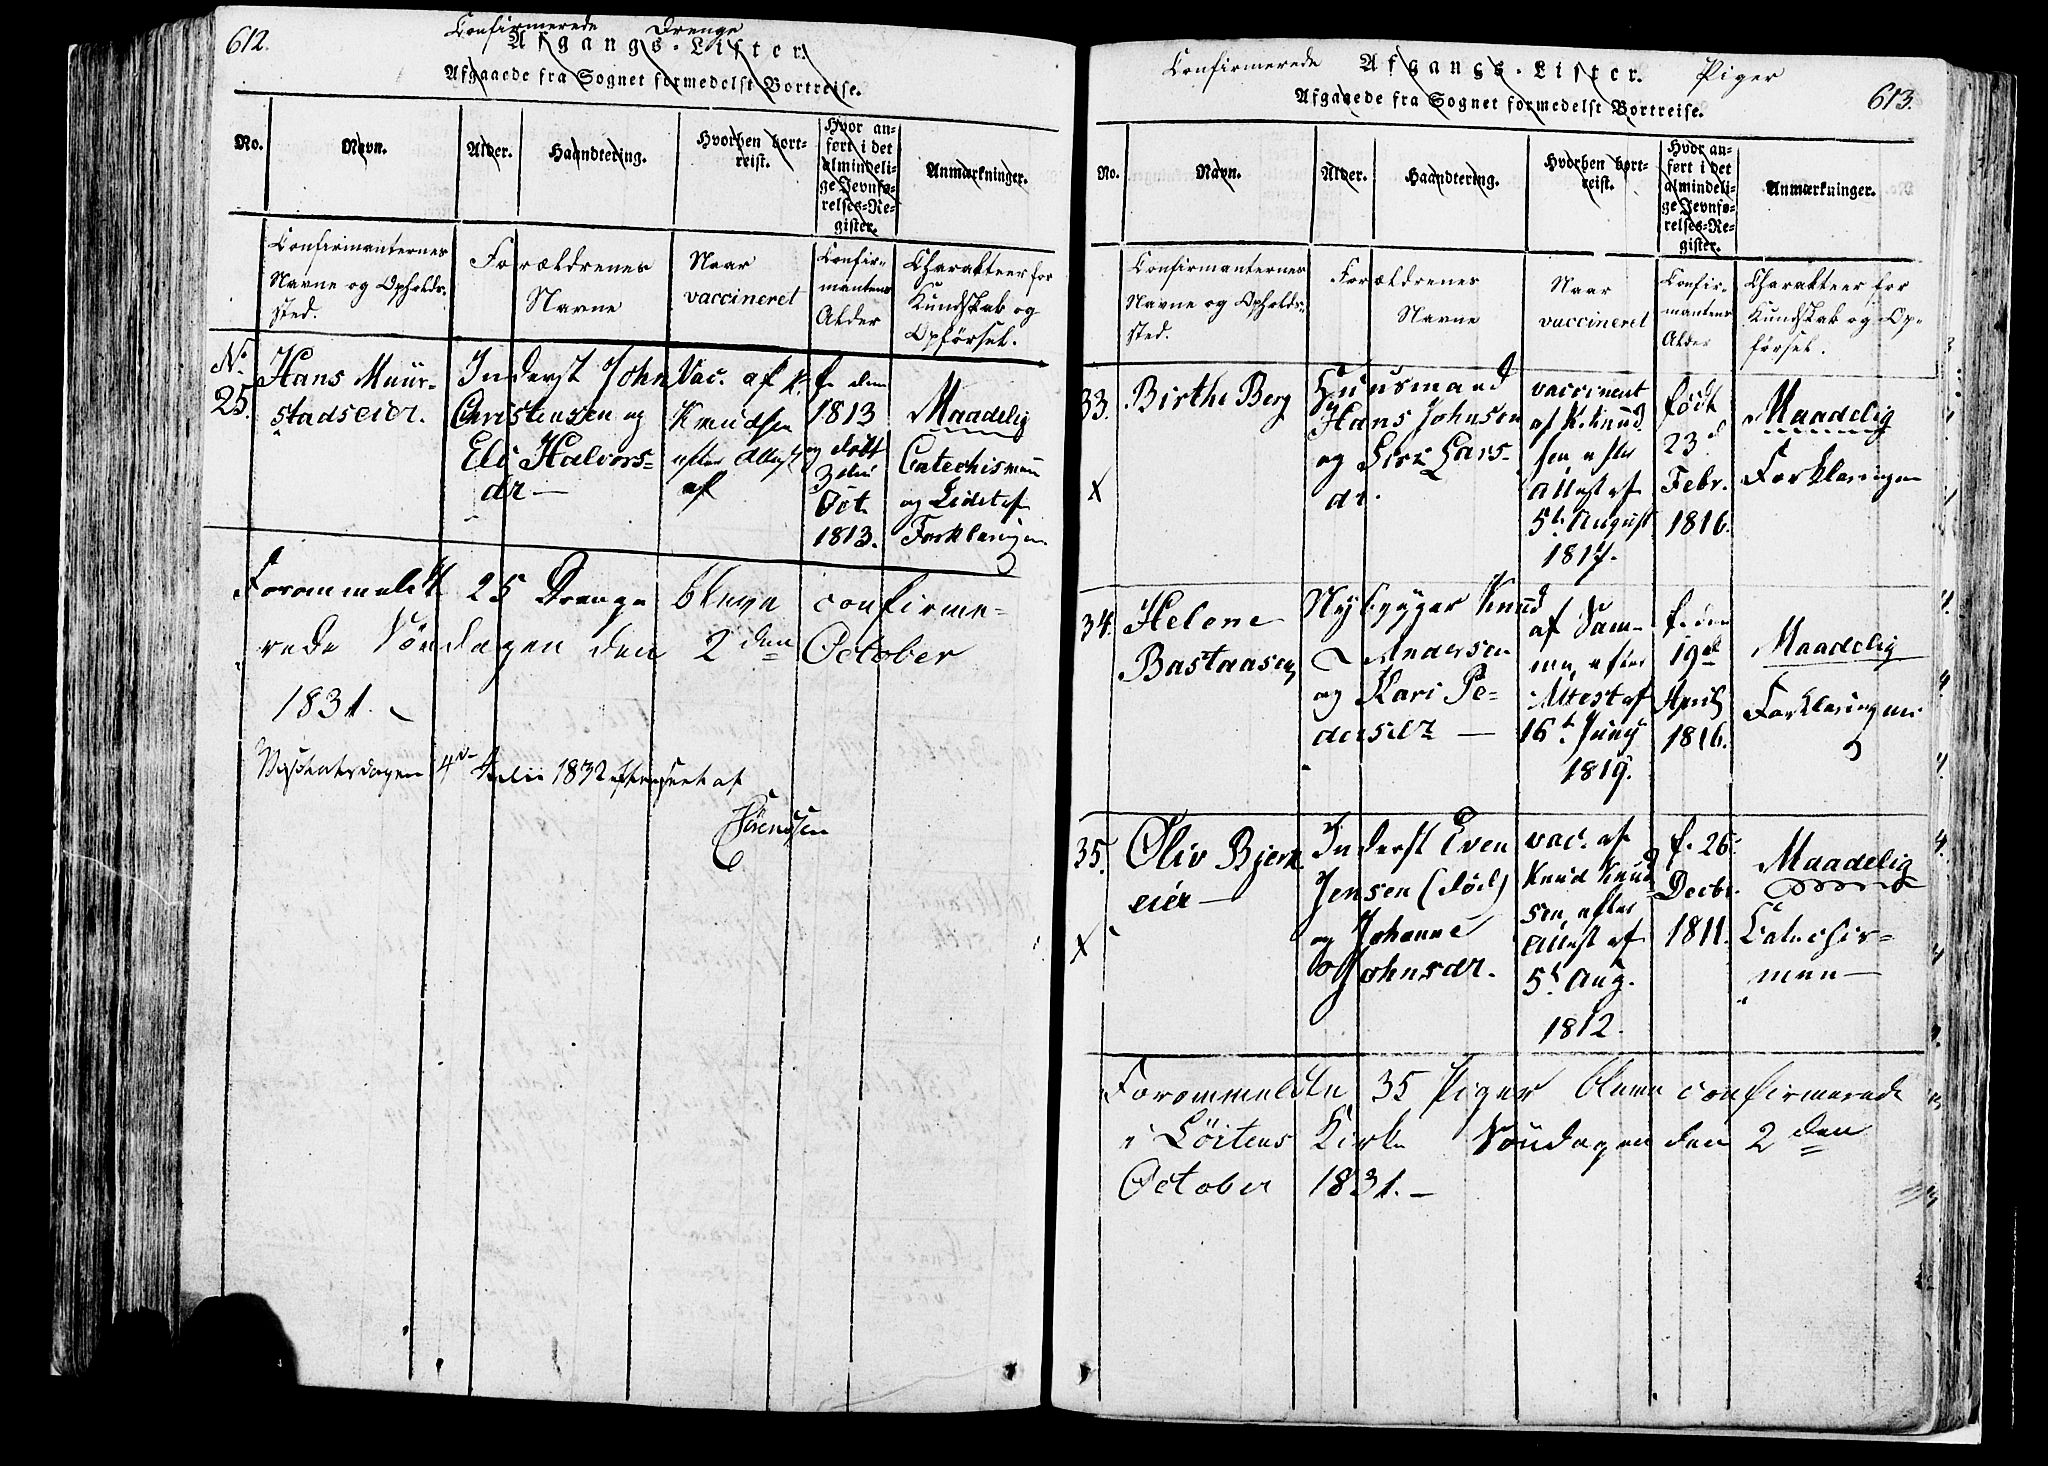 612.
Confirmerede Drenge
Afgangs-Lister.
Afgaaede fra Sognet formedelst Bortreise.
No.
Navn.
Alder.
Haandtering.
Hvorhen bort-
reist.
Hvor an-
ført i det
almindeli-
ge Jevnfø-
relses-Re-
gister.
Anmærkninger.
Confirmanternes
Navne og Opholds-
sted.
Forældrenes
Navne
Naar
vaccineret
Confir-
mantens
Alder
Charakteer for
Kundskab og
Opförsel.
No.
25.
Hans Muur-
stadseier.
Inderst John
Christensen og
Eli Halvors-
dr —
Vac. af K.
Knudsen
efter Attest
af
f. den
1813
og födt
3die
Oct.
1813.
Maadelig
Catechismen
og Lidet af
Forklaringen
Forommeldte 25 Drenge bleve confirme-
rede Söndagen den 2den October
1831.
Visitatsdagen 4de Julii 1832 efterseet af
Sörenssen
613.
Confirmerede Piger
Afgangs-Lister.
Afgaaede fra Sognet formedelst Bortreise.
No.
Navn.
Alder.
Haandtering.
Hvorhen bort-
reist.
Hvor an-
ført i det
almindeli-
ge Jevnfø-
relses-Re-
gister.
Anmærkninger.
Confirmanternes
Navne og Opholds-
sted.
Forældrenes
Navne
Naar
vaccineret
Confir-
mantens
Alder
Charakteer for
Kundskab og Op-
försel.
33.
X
Birthe Berg
Huusmand
Hans Johnsen
og Lise Lars-
dr.
vaccineret
af K. Knud-
sen efter
Attest af
5te August
1817.
födt
23d
Febr.
1816.
Maadelig
Forklaringen
34.
Helene
Bastaasen
Nybygger Knud
Andersen
og Kari Pe-
dersdr —
af Sam-
me, efter
Attest af
16t. Juny
1819.
f. den
19de
April
1816.
Maadelig
Forklaringen
35.
X
Oliv Bjerk
eier —
Inderst Even
Jensen (död)
og Johanne
Johnsdr.
vac. af
Knud Knud
sen, efter
Attest af
5t. Aug.
1812.
f. 26.
Decbr.
1811.
Maadelig
Catechis-
men —
Forommeldte 35 Piger bleve confirmerede
i Löitens Kirke Söndagen den 2den
October 1831. —